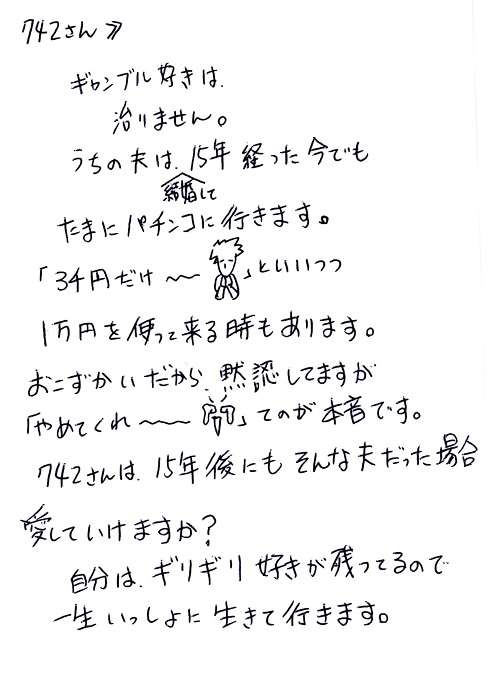 742さん≫
ギャンブル好きは、
治りません。
うちの夫は、15年経った今でも
結婚して
たまにパチンコに行きます。
「3千円だけ〜〜」といいつつ
1万円を使って来る時もあります。
おこずかいだから、黙認してますが
「やめてくれ〜〜」てのが本音です。
742さんは、15年後にもそんな夫だった場合
愛していけますか?
自分は、ギリギリ好きが残ってるので
一生いっしょに生きて行きます。